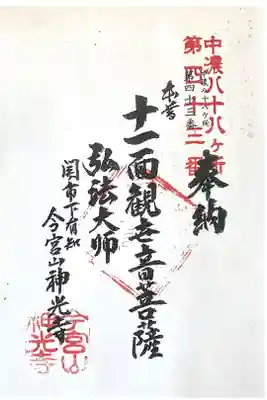 中濃八十八ヶ所
第四十三番
奉納
本尊
十一面観世音菩薩
弘法大師
関市下有知
今宮山神光寺
今宮山
神光寺